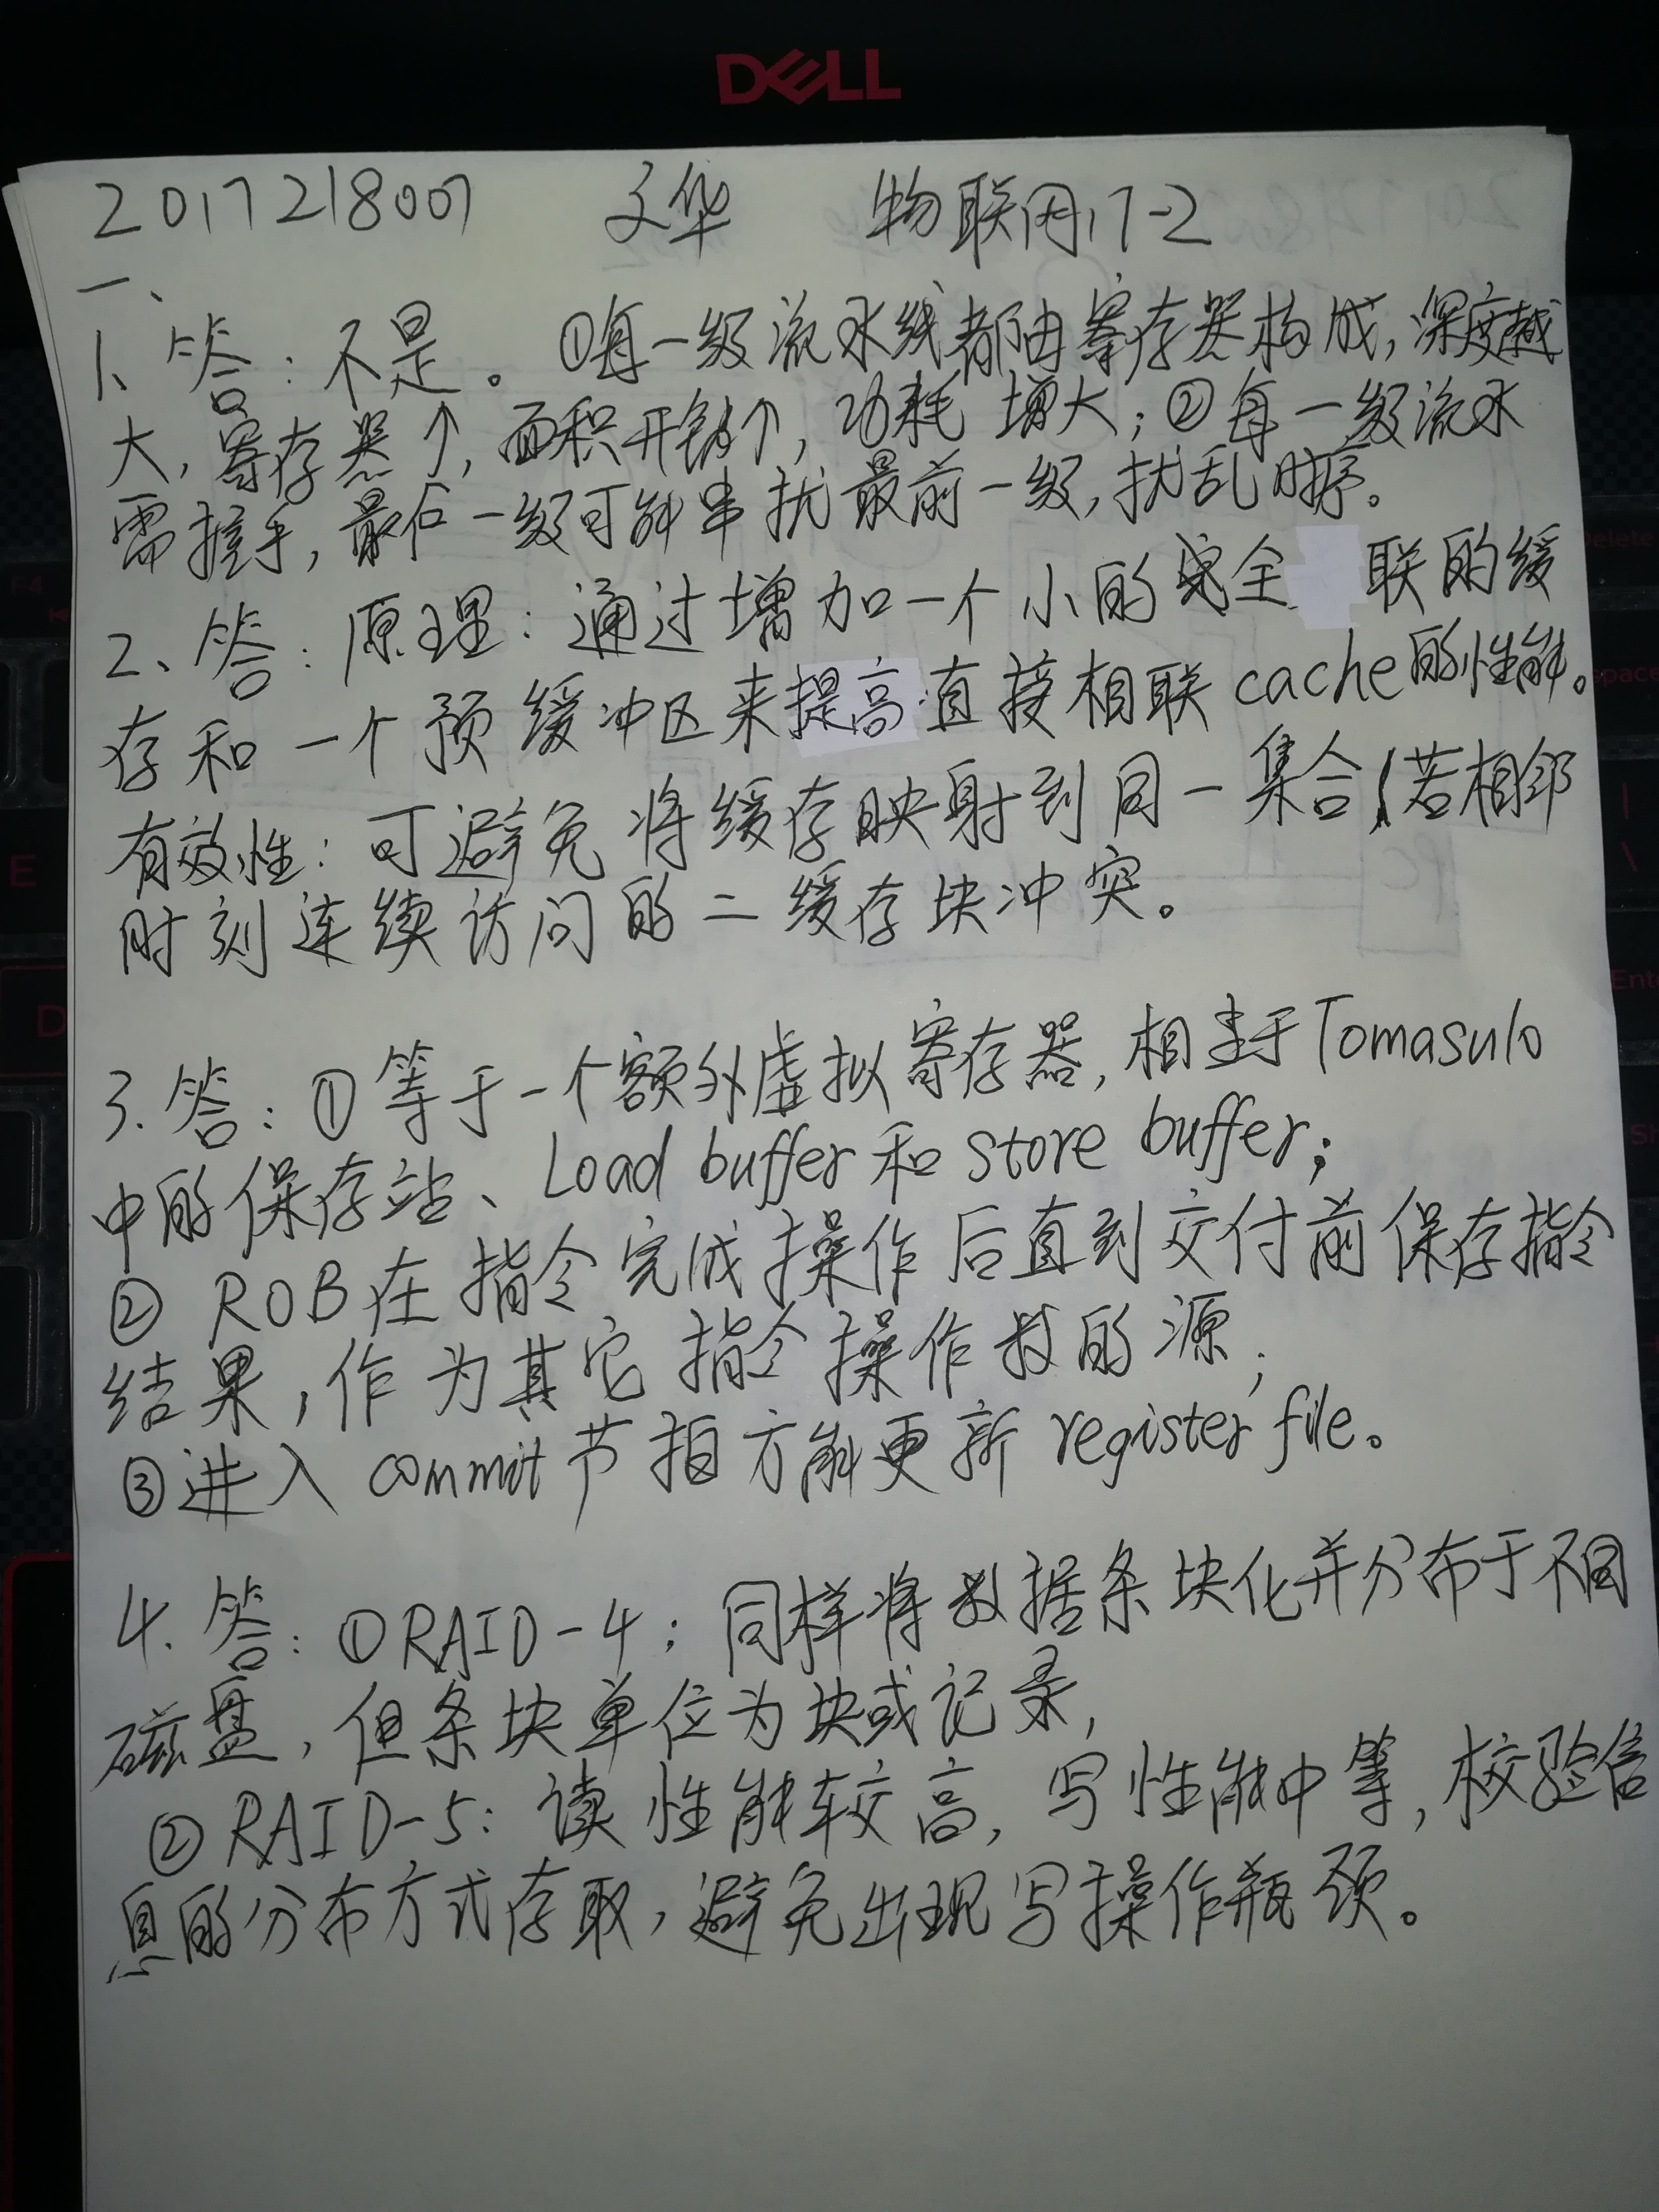 DELL
2017218007 文华 物联网17-2
一、
1、答：不是。①每一级流水线都由寄存器构成，深度越
大，寄存器↑，面积开销↑，功耗增大；②每一级流水
需握手，最后一级可能串扰最前一级，扰乱时序。
2、答：原理：通过增加一个小的完全 联的缓
存和一个预缓冲区来提高直接相联cache的性能。
有效性：可避免将缓存映射到同一集合，若相邻
时刻连续访问的二缓存块冲突。
3.答：①等于一个额外虚拟寄存器，相当于Tomasulo
中的保存站、Load buffer和store buffer；
② ROB在指令完成操作后直到交付前保存指令
结果，作为其它指令操作数的源；
③进入commit节拍方能更新register file。
4.答：①RAID-4：同样将数据条块化并分布于不同
磁盘，但条块单位为块或记录，
②RAID-5：读性能较高，写性能中等，校验信
息的分布方式存取，避免出现写操作瓶颈。